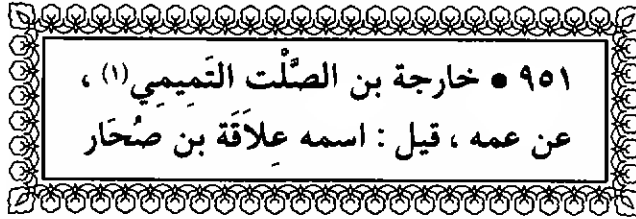 ٩٥١ • خارجة بن الصَّلْت التَمِيمِي (١) ،
عن عمه ، قيل : اسمه عِلاَقَة بن صُحَار